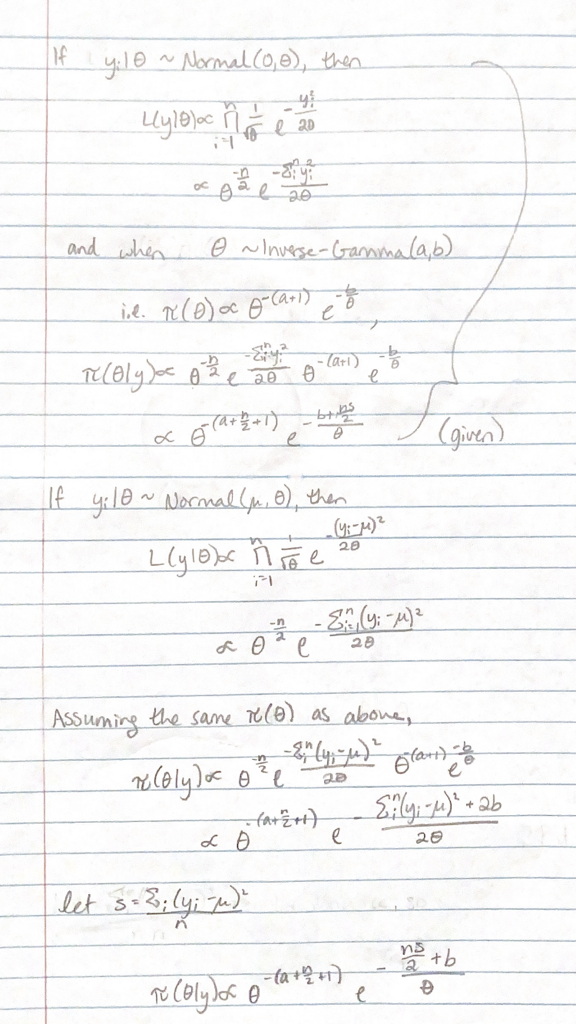 If yᵢ|θ ~ Normal(0,θ), then
L(y|θ) ∝ ∏ᵢ₌₁ⁿ 1/√θ e^(-yᵢ²/2θ)
∝ θ^(-n/2) e^(-Σᵢⁿyᵢ²/2θ)
and when θ ~ Inverse-Gamma(a,b)
i.e. π(θ) ∝ θ^-(a+1) e^(-b/θ),
π(θ|y) ∝ θ^(-n/2) e^(-Σᵢⁿyᵢ²/2θ) θ^-(a+1) e^(-b/θ)
∝ θ^-(a+n/2+1) e^(-(b+ns/2)/θ) (given)
If yᵢ|θ ~ Normal(μ,θ), then
L(y|θ) ∝ ∏ᵢ₌₁ⁿ 1/√θ e^(-(yᵢ-μ)²/2θ)
∝ θ^(-n/2) e^(-Σᵢ₌₁ⁿ(yᵢ-μ)²/2θ)
Assuming the same π(θ) as above,
π(θ|y) ∝ θ^(-n/2) e^(-Σᵢⁿ(yᵢ-μ)²/2θ) θ^-(a+1) e^(-b/θ)
∝ θ^-(a+n/2+1) e^(-(Σᵢⁿ(yᵢ-μ)²+2b)/2θ)
let s = Σᵢ(yᵢ-μ)²/n
π(θ|y) ∝ θ^-(a+n/2+1) e^(-(ns/2+b)/θ)